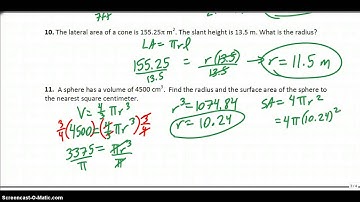 10. The lateral area of a cone is 155.25π m². The slant height is 13.5 m. What is the radius?
LA = πrl
155.25 = r(13.5)
13.5 13.5
r = 11.5 m
11. A sphere has a volume of 4500 cm³. Find the radius and the surface area of the sphere to
the nearest square centimeter.
V = 4/3 πr³
3/4 (4500) = (4/3 πr³) 3/4
3375 = πr³
π π
r³ = 1074.84
r = 10.24
SA = 4πr²
= 4π(10.24)²
Screencast-O-Matic.com